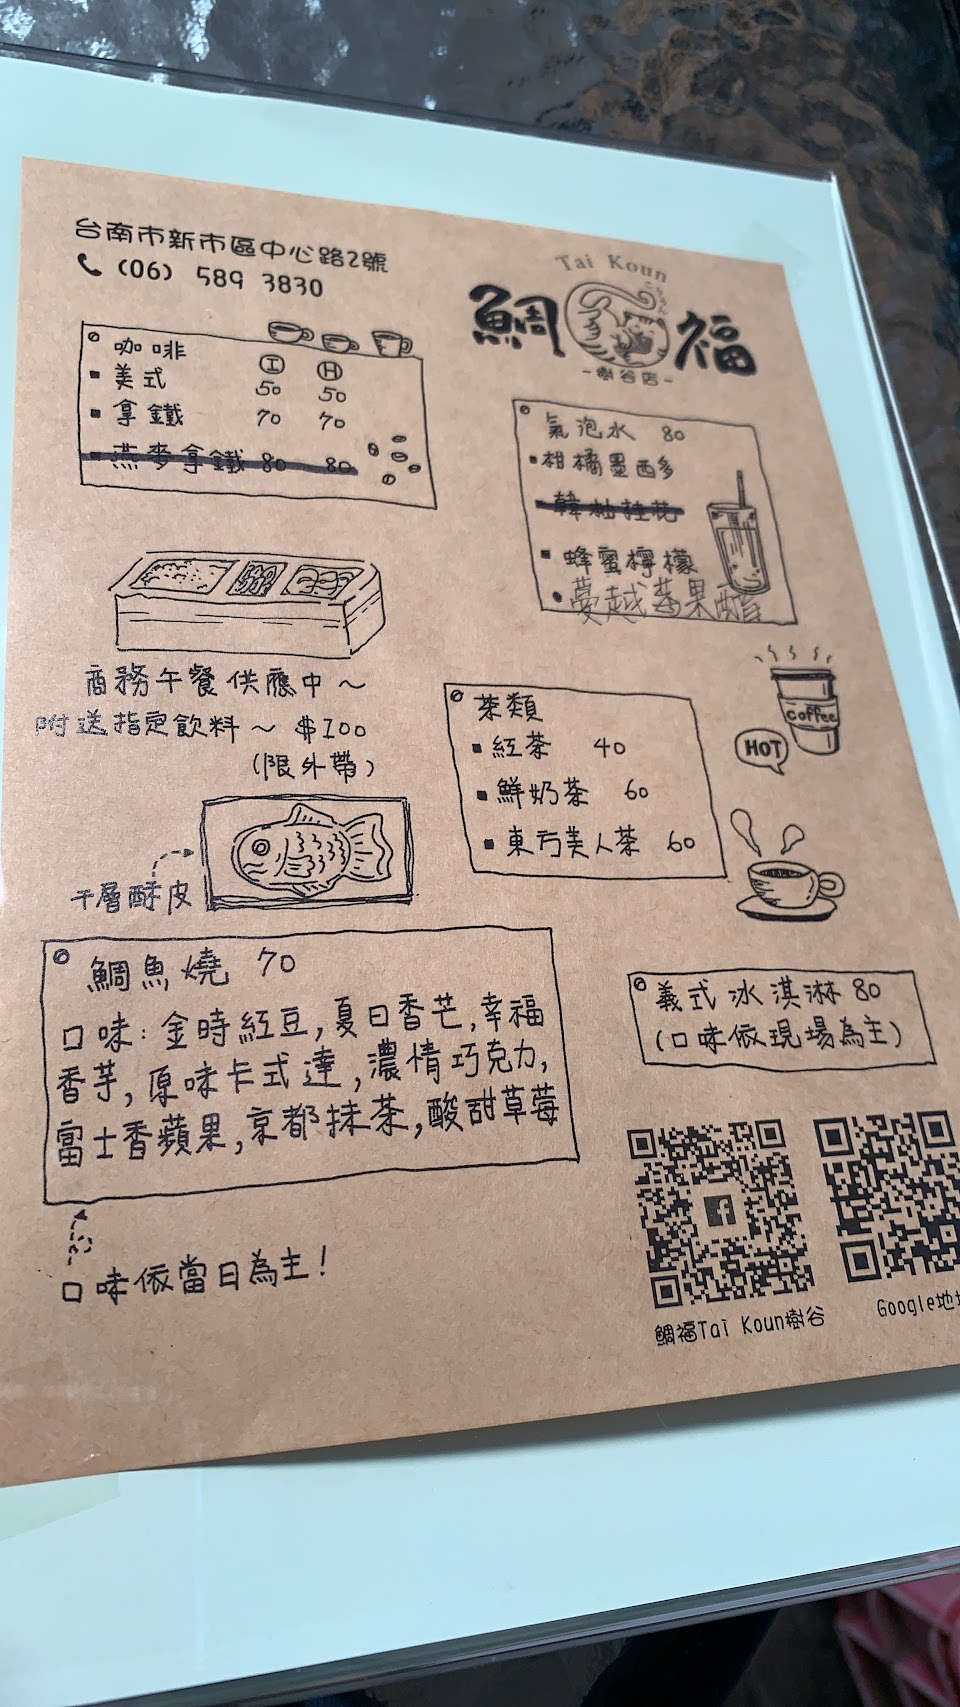 台南市新市區中心路2號
(06) 589 3830
Tai Koun
鯛福
-樹谷店-
咖啡
I H
美式 50 50
拿鐵 70 70
燕麥拿鐵 80 80
氣泡水 80
柑橘墨西多
蜂蜜檸檬
蔓越莓果醋
商務午餐供應中～
附送指定飲料～ $100
(限外帶)
茶類
紅茶 40
鮮奶茶 60
東方美人茶 60
coffee
HOT
千層酥皮
鯛魚燒 70
口味：金時紅豆,夏日香芒,幸福
香芋,原味卡式達,濃情巧克力,
富士香蘋果,京都抹茶,酸甜草莓
口味依當日為主！
義式冰淇淋 80
(口味依現場為主)
鯛福Tai Koun樹谷
Google地